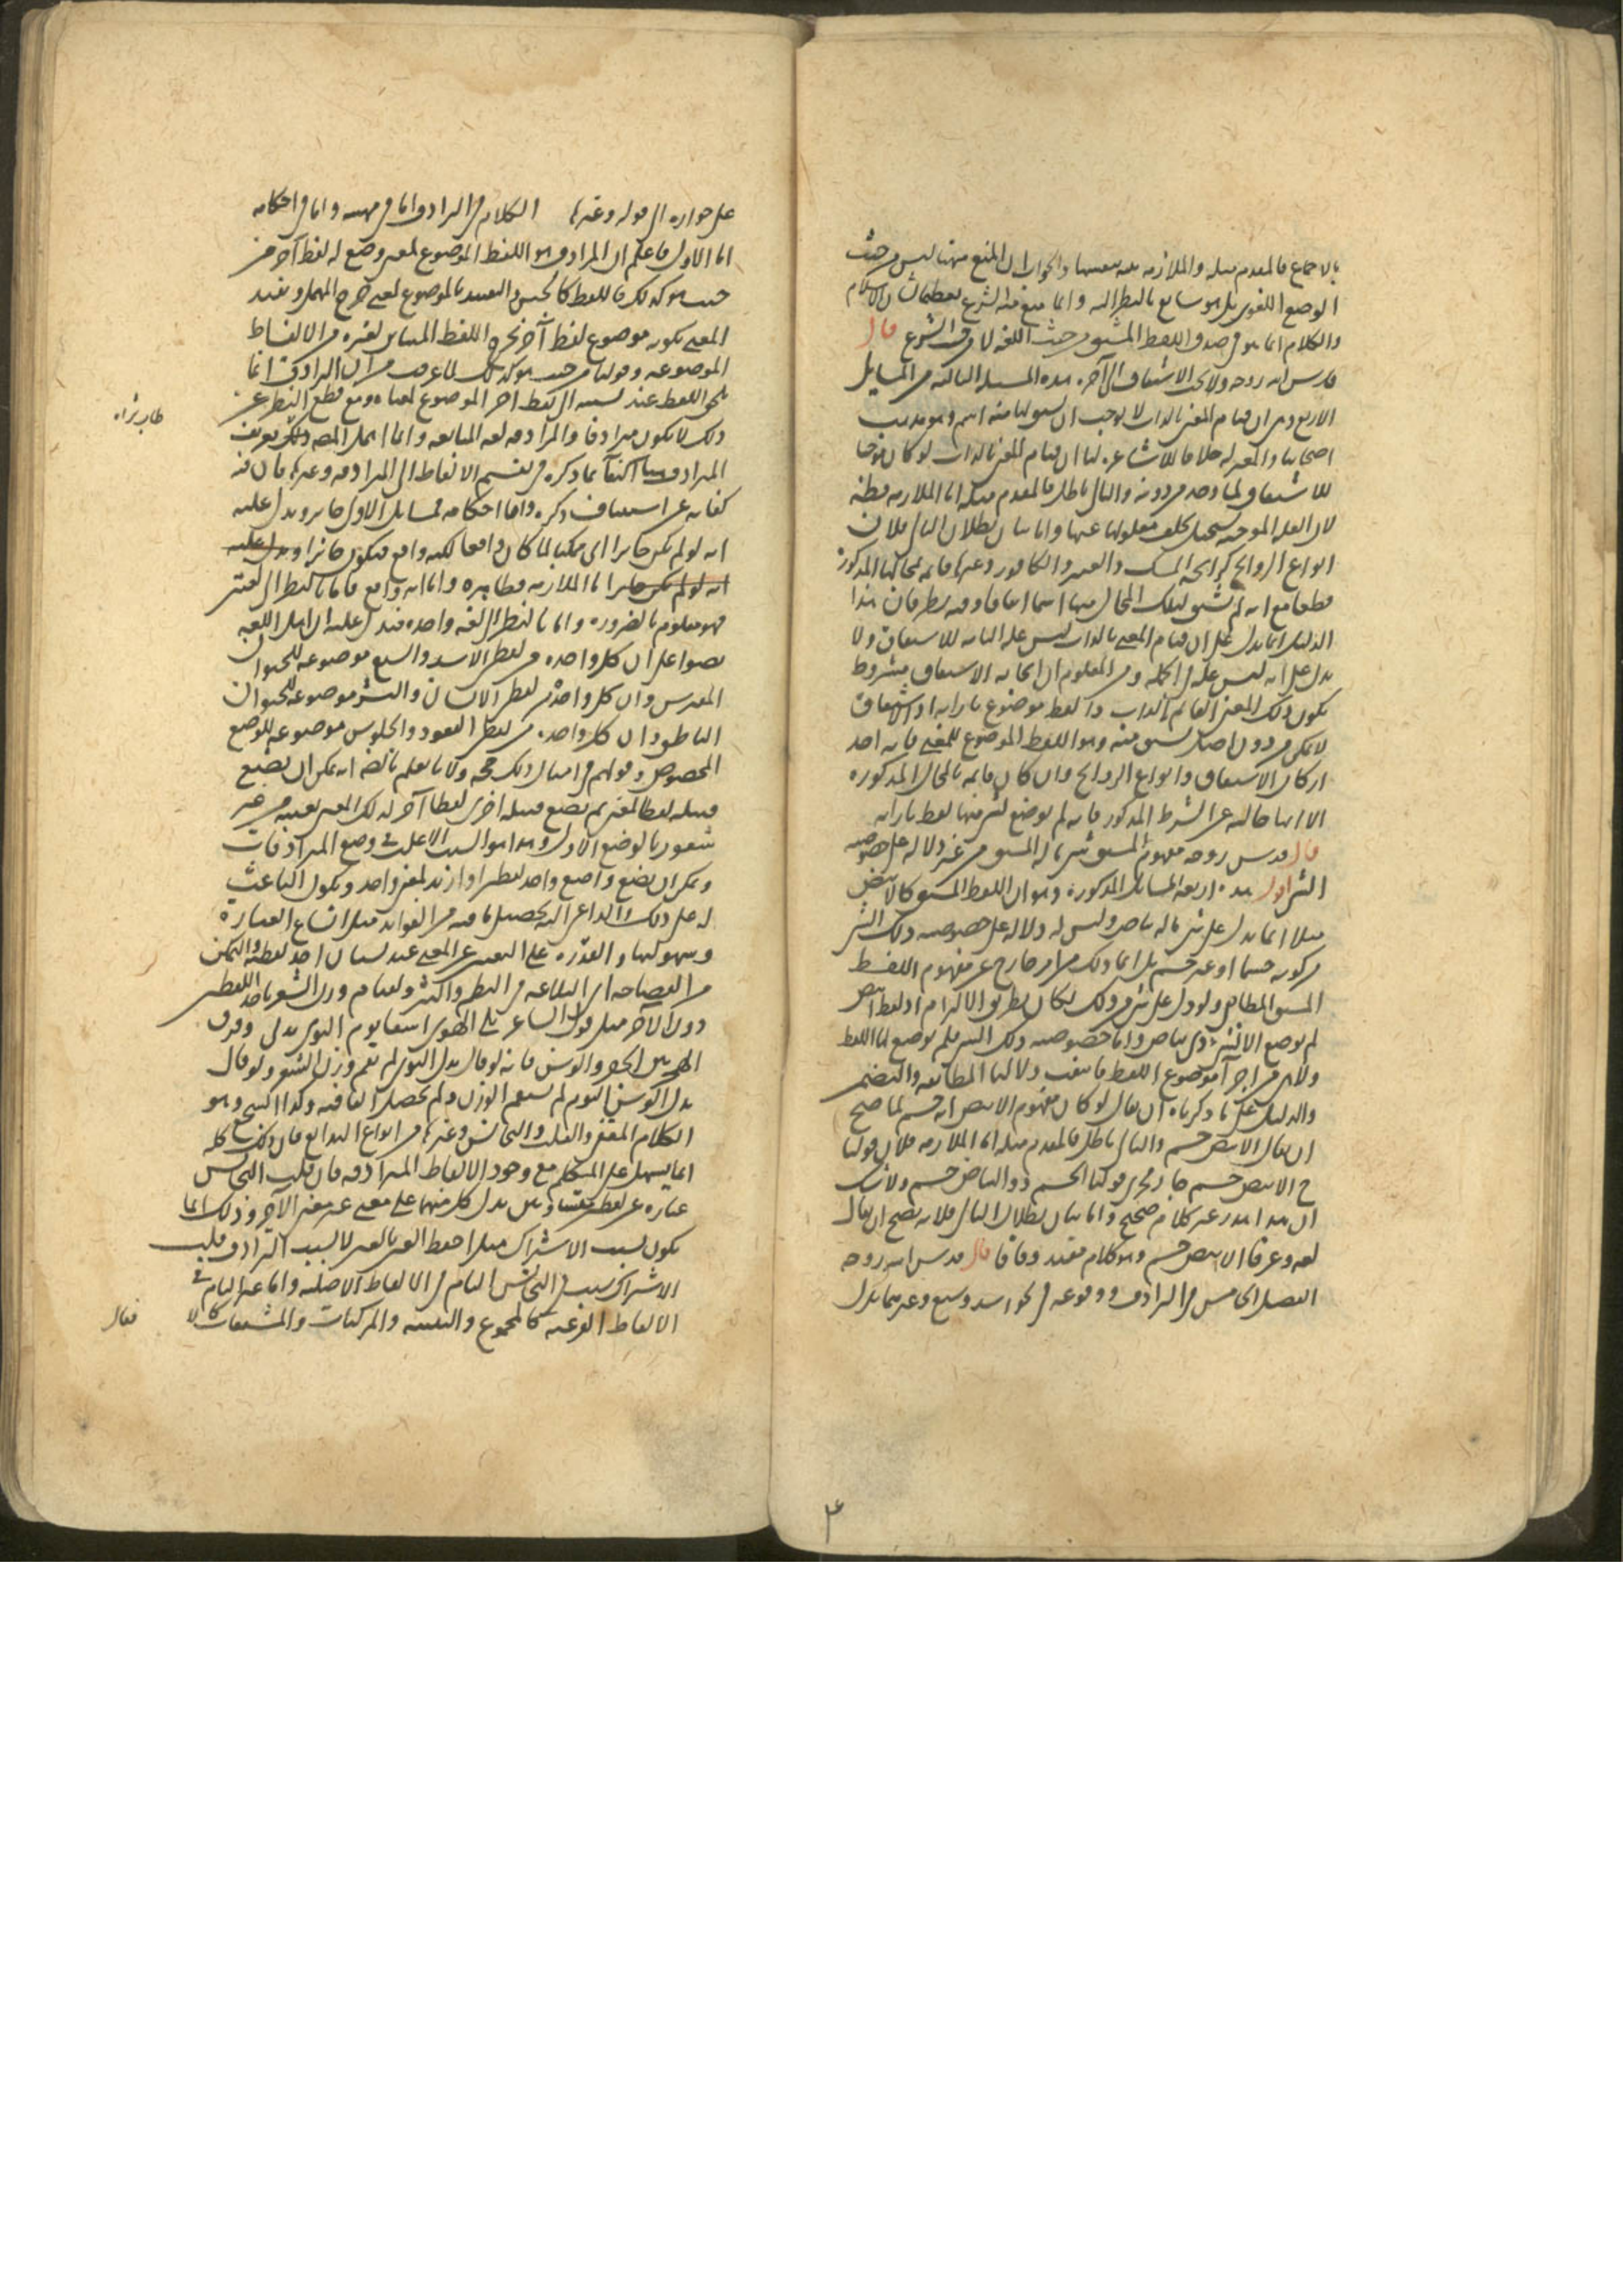 بالاجماع فالمقدم مثله والملازمة بعد بعينها والجواب ان المنع منها ليس من حيث
الوضع اللغوي بل هو سايغ بالنظر اليه وانما منع منه الشرع تعظيما لشان الاسلام
والكلام انما هو في صدق اللفظ المشتق من حيث اللغة لا من حيث الشرع قال
قدس الله روحه ولا يجب الاشتقاق الى آخره هذه المسئلة الثالثة من المسايل
الاربع وهي ان قيام المعنى بالذات لا يوجب ان يشتق لها منه اسم وهو مذهب
اصحابنا والمعتزلة خلافا للاشاعرة لنا ان قيام المعنى بالذات لو كان موجبا
للاشتقاق لما وجد من دونه والتالي باطل فالمقدم مثله اما الملازمة فظاهرة
لان العلة الموجبة يستحيل تخلف معلولها عنها واما بيان بطلان التالي فلان
انواع الروايح كرايحة المسك والعنبر والكافور وغيرها قائمة بمحالها المذكورة
قطعا مع انه لم يشتق لتلك المحال منها اسما اتفاقا وفيه نظر فان هذا
الدليل انما يدل على ان قيام المعنى بالذات ليس علة تامة للاشتقاق ولا
يدل على انه ليس علة في الجملة ومن المعلوم ان ايجابه الاشتقاق مشروط
بكون ذلك المعنى القائم بالذات ذا لفظ موضوع بازائه اذ الاشتقاق
لا يمكن من دون اصل يشتق منه وهو اللفظ الموضوع للمعنى فانه احد
اركان الاشتقاق وانواع الروايح وان كان قائمة بالمحال المذكورة
الا انها خالية عن الشرط المذكور فانه لم يوضع لشيء منها لفظ بازائه
قال قدس روحه مفهوم المشتق شيء ما له المشتق منه من غير دلالة على خصوصية
الشيء اقول هذه اربعة المسايل المذكورة وهو ان اللفظ المشتق كالابيض
مثلا انما يدل على شيء ما له بياض وليس له دلالة على خصوصية ذلك الشيء
من كونه جسما او غير جسم بل انما ذلك من امر خارج عن مفهوم اللفظ
المشتق المطابقي ولو دل على شيء من ذلك لكان بطريق الالتزام اذ لفظ ابيض
لم يوضع الا لشيء ذي بياض واما خصوصية ذلك الشيء فلم يوضع لها اللفظ
ولا هي من اجزاء موضوع اللفظ فانتفت دلالتا المطابقة والتضمن
والدليل على ما ذكرناه ان يقال لو كان مفهوم الابيض انه جسم لما صح
ان يقال الابيض جسم والتالي باطل فالمقدم مثله اما الملازمة فلان قولنا
ح الابيض جسم جار مجرى قولنا الجسم ذو البياض جسم ولا شك
ان هذا هذر غير كلام صحيح واما بيان بطلان التالي فلانه يصح ان يقال
لغة وعرفا الابيض جسم وهو كلام مفيد وفاقا قال قدس الله روحه
الفصل الخامس في الترادف ووقوعه في نحو اسد وسبع وغيرهما يدل
٣
على جوازه الى قوله وغيرها الكلام في الترادف اما في مهيته واما في احكامه
اما الاول فاعلم ان المرادف هو اللفظ الموضوع لمعنى وضع له لفظ آخر من
حيث هو كذلك فاللفظ كالجنس والتقييد بالموضوع لمعنى خرج المهمل وتقييد
المعنى بكونه موضوع لفظ آخر يخرج اللفظ المباين لغيره من الالفاظ
الموضوعة وقولنا من حيث هو كذلك لما عرفت من ان الترادف انما
يلحق اللفظ عند نسبته الى لفظ اخر الموضوع لمعناه ومع قطع النظر عن
ذلك لا يكون مرادفا والمرادفة لغة المتابعة وانما اهمل المص ذلك تعريف
المرادف هنا اكتفاء بما ذكره في تقسيم الالفاظ الى المترادفة وغيرها فان فيه
كفاية عن استيناف ذكره واما احكامه فمسايل الاول جايز ويدل عليه
انه لو لم يكن جايزا اي ممكنا لما كان واقعا لكنه واقع فيكون جائزا ويدل عليه
انه لو لم يكن جايزا اما الملازمة فظاهرة واما انه واقع فاما بالنظر الى لغتين
فهو معلوم بالضرورة واما بالنظر الى لغة واحدة فيدل عليه ان اهل اللغة
نصوا على ان كل واحدة من لفظي الاسد والسبع موضوعة للحيوان
المفترس وان كل واحدة من لفظي الانسان والبشر موضوعة للحيوان
الناطق وان كل واحدة من لفظي القعود والجلوس موضوعة للوضع
المخصوص وقولهم في امثال ذلك حجة ولانا نعلم بالضرورة انه يمكن ان يضع
قبيلة لفظا لمعنى ثم يضع قبيلة اخرى لفظا آخر لذلك المعنى بعينه من غير
شعور بالوضع الاول وهذا هو السبب الاغلب في وضع المترادفات
ويمكن ان يضع واضع واحد لفظين او ازيد لمعنى واحد ويكون الباعث
له على ذلك والداعي اليه تحصيل ما فيه من الفوايد مثل اتساع العبارة
وسهولتها والقدرة على التعبير عن المعنى عند نسيان احد لفظيه والتمكن
من الفصاحة اي البلاغة في النظم والنثر ولقيام وزن الشعر باحد اللفظين
دون الآخر مثل قول الشاعر بلي الهوى اسفا يوم النوى بدني وفرق
الهجر بين الجفن والوسن فانه لو قال بدل النوى لم يقم وزن الشعر ولو قال
بدل الوسن النوم لم يستقم الوزن ولم تحصل القافية وكذا السجع وهو
الكلام المقفى والقلب والتجانس وغيرها من انواع البدايع فان ذلك كله
انما يسهل على المتكلم مع وجود الالفاظ المترادفة فان قلت التجانس
عبارة عن لفظين متشابهين يدل كل منهما على معنى غير معنى الآخر وذلك انما
يكون بسبب الاشتراك مثل احفظ العين بالعين لا بسبب الترادف قلت
الاشتراك سبب في التجانس التام في الالفاظ الاصلية واما غير التام في
الالفاظ الفرعية كالمجموع والتثنية والمركبات والمشتقات كالا
فقال